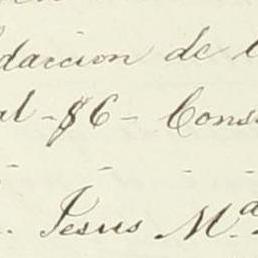 daccion de l
al - $6 - Cons
. Jesus Mª.